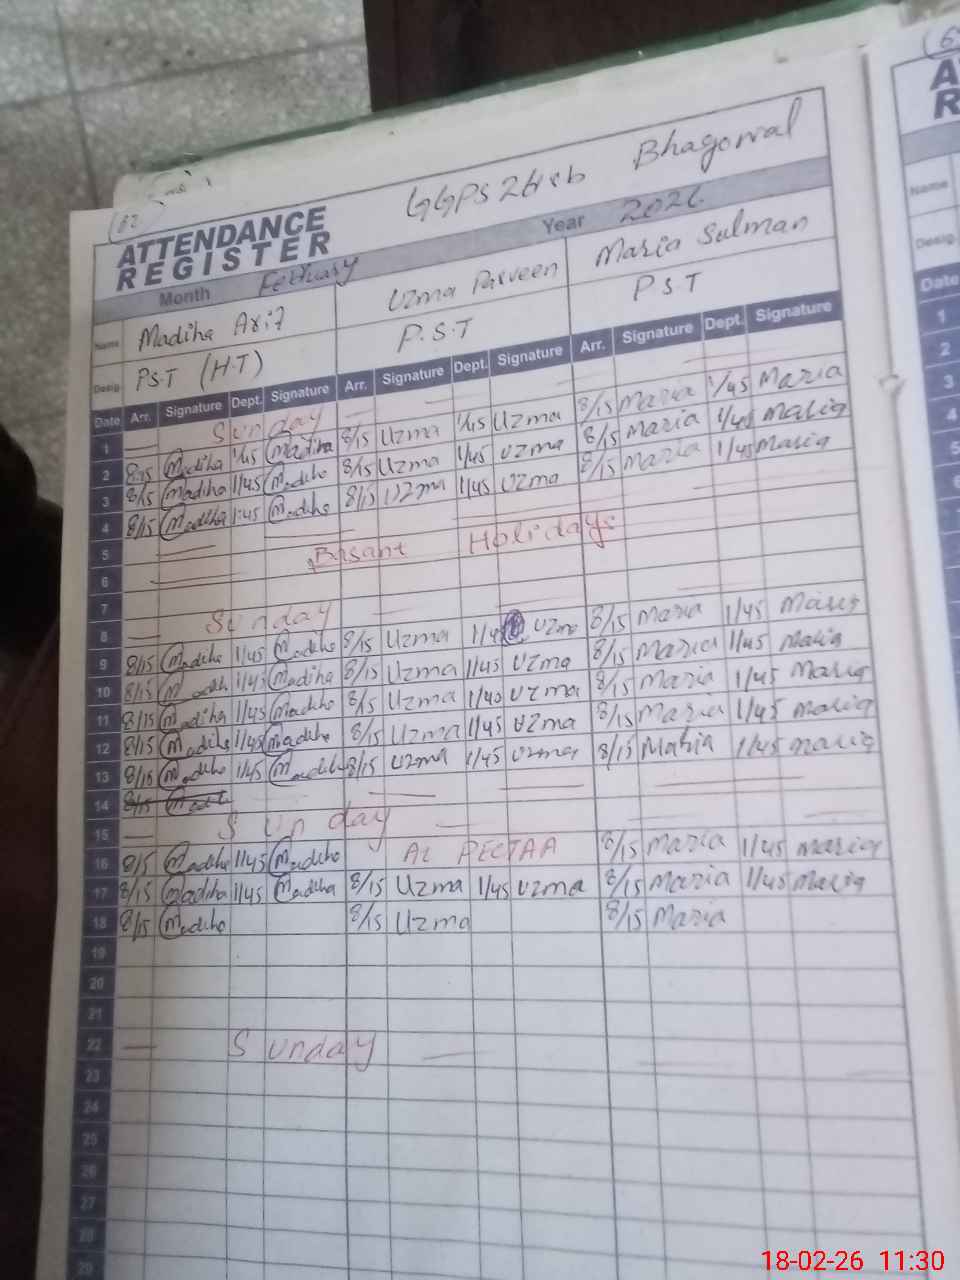 62
GGPS 24 Rb Bhagowal
ATTENDANCE
REGISTER
Month February Year 2026
Name Madiha Arif Uzma Parveen Maria Salman
Desig. PST (H.T) P.S.T P.S.T
Date Arr. Signature Dept. Signature Arr. Signature Dept. Signature Arr. Signature Dept. Signature
1 Sunday
2 8:15 Madiha 1/45 Madiha 8/15 Uzma 1/45 Uzma 8/15 Maria 1/45 Maria
3 8/15 Madiha 1/45 Madiha 8/15 Uzma 1/45 Uzma 8/15 Maria 1/45 Maria
4 8/15 Madiha 1:45 Madiha 8/15 Uzma 1/45 Uzma 8/15 Maria 1/45 Maria
5
6 Basant Holidays
7
8 Sunday
9 8/15 Madiha 1/45 Madiha 8/15 Uzma 1/45 Uzma 8/15 Maria 1/45 Maria
10 8/15 Madiha 1/45 Madiha 8/15 Uzma 1/45 Uzma 8/15 Maria 1/45 Maria
11 8/15 Madiha 1/45 Madiha 8/15 Uzma 1/40 Uzma 8/15 Maria 1/45 Maria
12 8/15 Madiha 1/45 Madiha 8/15 Uzma 1/45 Uzma 8/15 Maria 1/45 Maria
13 8/15 Madiha 1/45 Madiha 8/15 Uzma 1/45 Uzma 8/15 Maria 1/45 Maria
14 8/15
15 Sunday
16 8/15 Madiha 1/45 Madiha At PECTAA 8/15 Maria 1/45 Maria
17 8/15 Madiha 1/45 Madiha 8/15 Uzma 1/45 Uzma 8/15 Maria 1/45 Maria
18 8/15 Madiha 8/15 Uzma 8/15 Maria
19
20
21
22 Sunday
23
24
25
26
27
28
29
A
R
Name
Desig.
Date
1
2
3
4
5
6
18-02-26 11:30